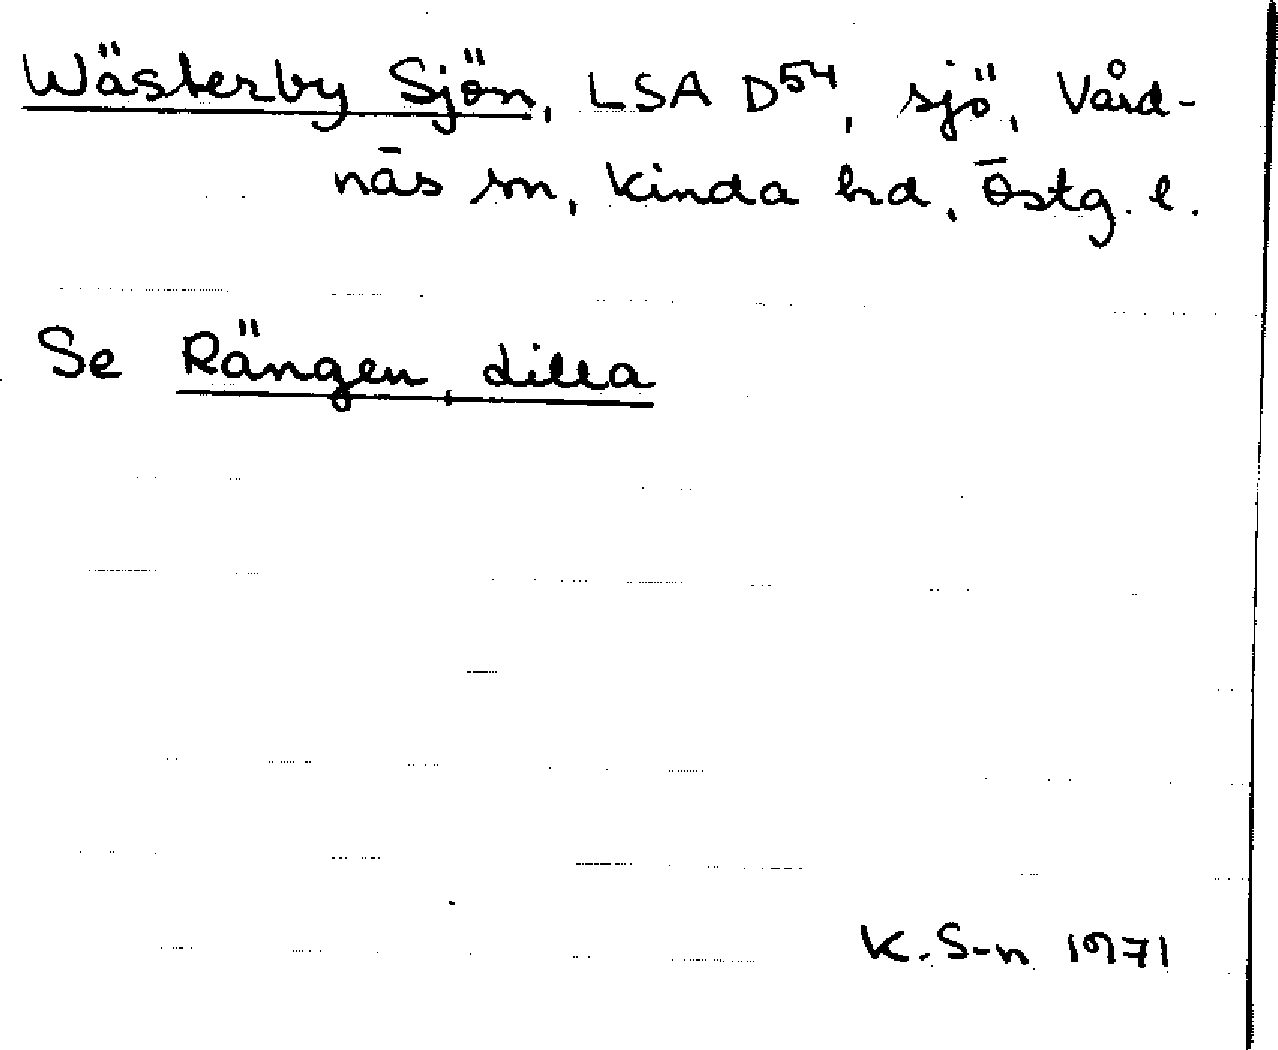 Wästerby Sjön, LSA D54, sjö, Vård-
näs sn, Kinda hd, Östg. l.
Se Rängen, Lilla
K. S-n 1971